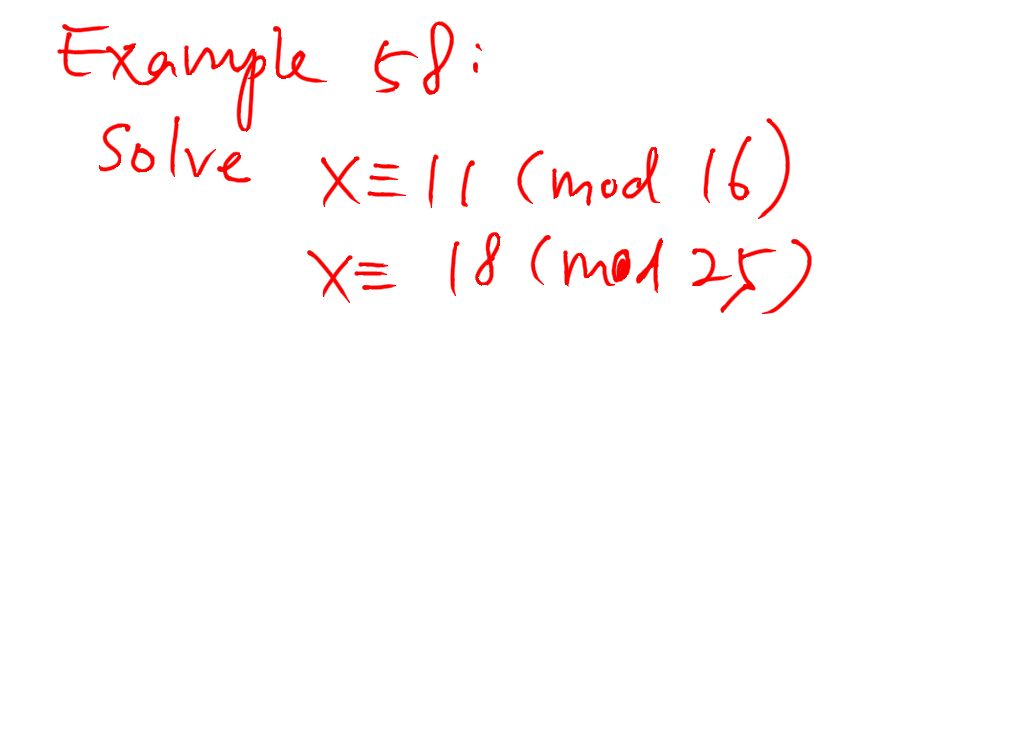 Example 58:
Solve x≡11 (mod 16)
x≡ 18 (mod 25)